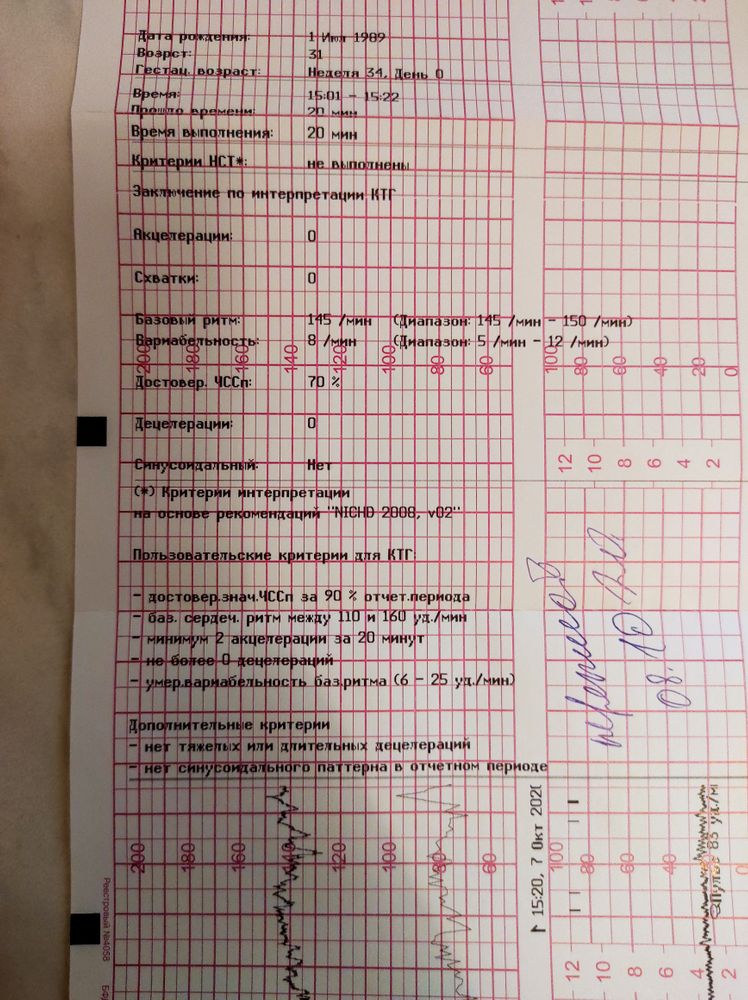 Дата рождения: 1 Июл 1989
Возрст: 31
Гестац. возраст: Неделя 34, День 0
Время: 15:01 - 15:22
Прошло времени: 20 мин
Время выполнения: 20 мин
Критерии НСТ*: не выполнены
Заключение по интерпретации КТГ
Акцелерации: 0
Схватки: 0
Базовый ритм: 145 /мин (Диапазон: 145 /мин - 150 /мин)
Вариабельность: 8 /мин (Диапазон: 5 /мин - 12 /мин)
200 180 160 140 120 100 80 60 100 80 60 40 20 0
Достовер. ЧССп: 70 %
Децелерации: 0
12 10 8 6 4 2
Синусоидальный: Нет
(*) Критерии интерпретации
на основе рекомендаций "NICHD 2008, v02"
Пользовательские критерии для КТГ:
- достовер.знач.ЧССп за 90 % отчет.периода
- баз. сердеч. ритм между 110 и 160 уд./мин
- минимум 2 акцелерации за 20 минут
- не более 0 децелераций
- умер.вариабельность баз.ритма (6 - 25 уд./мин)
08.10
Дополнительные критерии
- нет тяжелых или длительных децелераций
- нет синусоидального паттерна в отчетном периоде
200 180 160 140 120 100 80 60 100 80 60 40 20 0
15:20, 7 Окт 202
Пульс 85 уд/м
12 10 8 6 4 2
Реестровый №4058